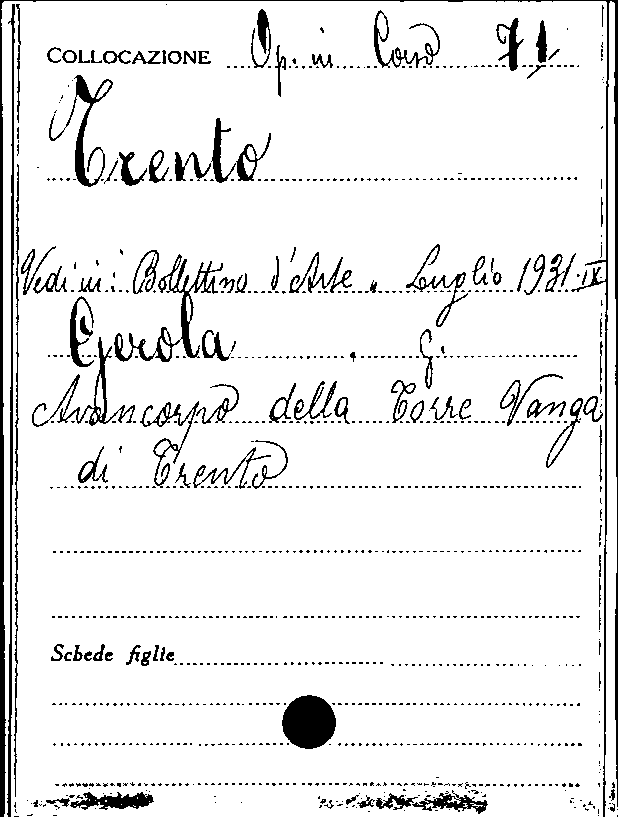 COLLOCAZIONE Op. in Corso 71
Trento
Vedi in: Bollettino d'Arte. Luglio 1931 IX
Gerola. G.
Avancorpo della Torre Vanga
di Trento
Schede figlie